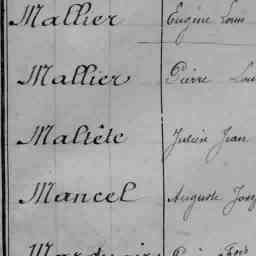 Mallier Eugène Louis
Mallier Pierre Lou
Maltête Julien Jean
Mancel Auguste Jose